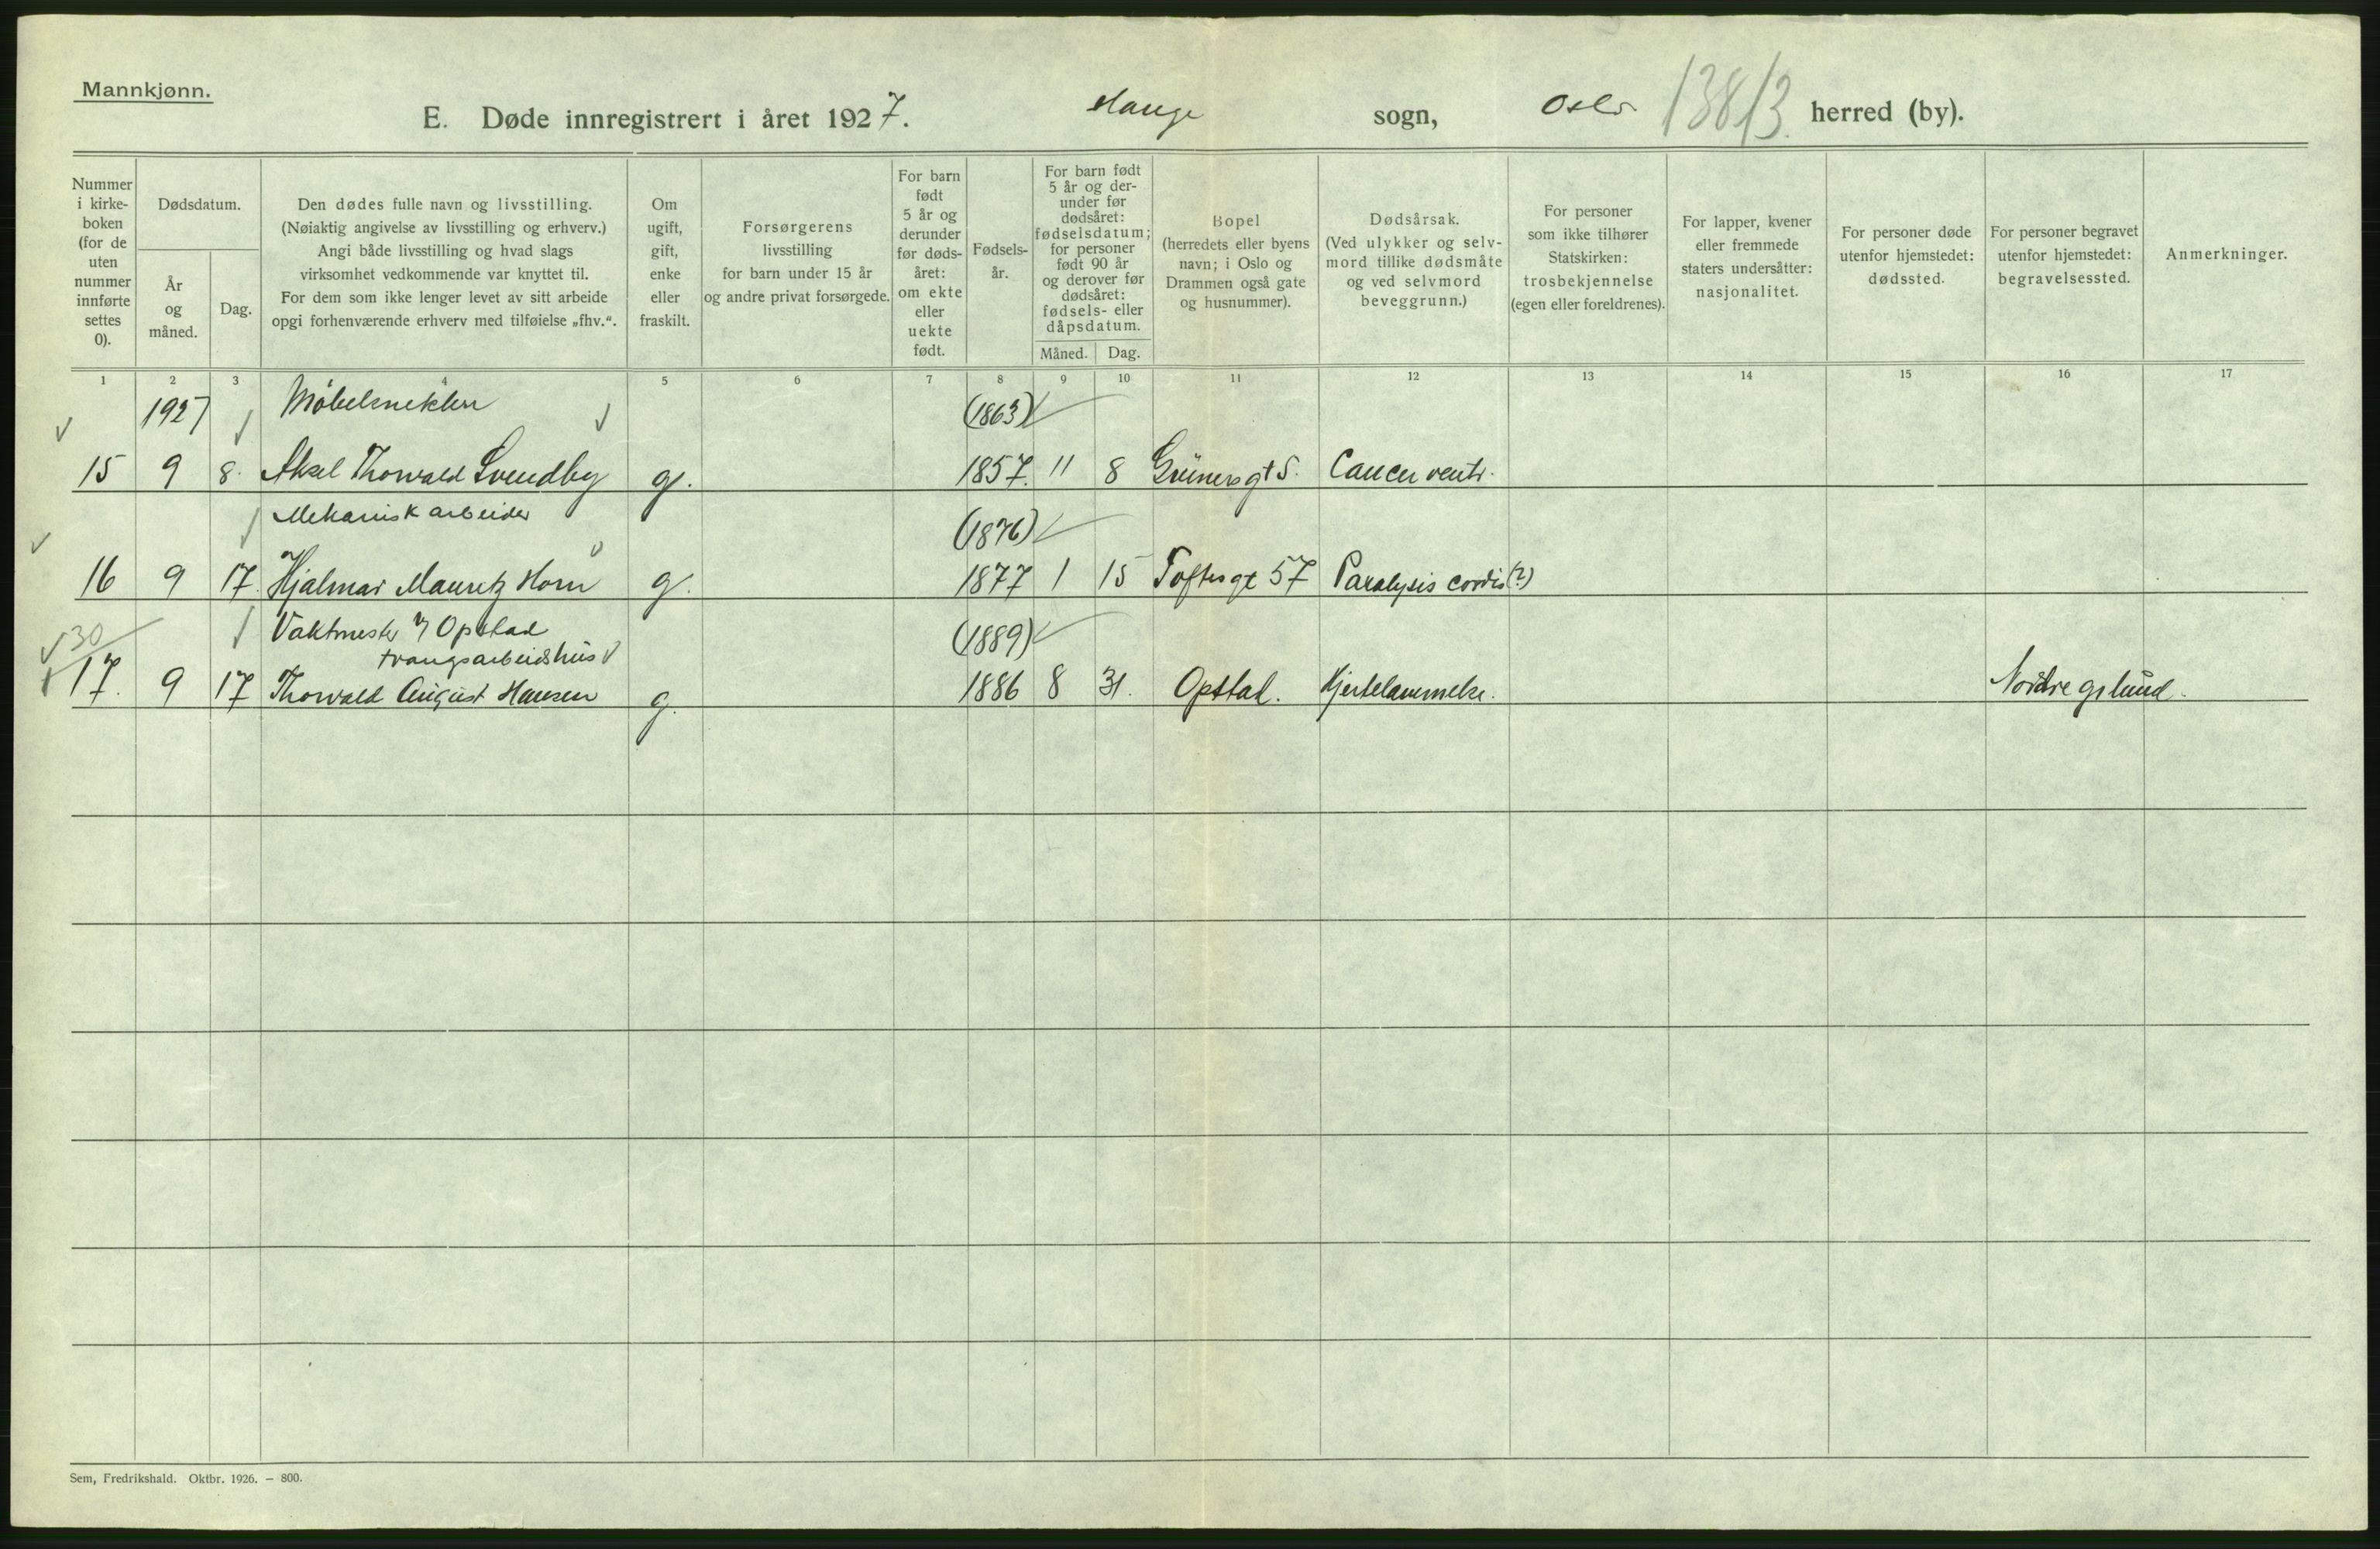 Mannkjønn.
E. Døde innregistrert i året 1927. Hauge sogn, Oslo 13813. herred (by).
Nummer i kirke- boken (for de uten nummer innførte settes 0).
Dødsdatum.
År og måned.
Dag.
Den dødes fulle navn og livsstilling.
(Nøiaktig angivelse av livsstilling og erhverv.)
Angi både livsstilling og hvad slags
virksomhet vedkommende var knyttet til.
For dem som ikke lenger levet av sitt arbeide
opgi forhenværende erhverv med tilføielse „fhv.“.
Om ugift, gift, enke eller fraskilt.
Forsørgerens
livsstilling
for barn under 15 år
og andre privat forsørgede.
For barn født 5 år og derunder før døds- året: om ekte eller uekte født.
Fødsels- år.
For barn født 5 år og der- under før dødsåret: fødselsdatum; for personer født 90 år og derover før dødsåret: fødsels- eller dåpsdatum.
Måned. Dag.
Bopel
(herredets eller byens
navn; i Oslo og
Drammen også gate
og husnummer).
Dødsårsak.
(Ved ulykker og selv-
mord tillike dødsmåte
og ved selvmord
beveggrunn.)
For personer
som ikke tilhører
Statskirken:
trosbekjennelse
(egen eller foreldrenes).
For lapper, kvener
eller fremmede
staters undersåtter:
nasjonalitet.
For personer døde
utenfor hjemstedet:
dødssted.
For personer begravet
utenfor hjemstedet:
begravelsessted.
Anmerkninger.
1 2 3 4 5 6 7 8 9 10 11 12 13 14 15 16 17
1927 Møbelsnekker (1863)
15 9 8. Aksel Thorvald Svendby g. 1857. 11 8 Grünersgt 5. Cancer ventr.
Mekanisk arbeider (1876)
16 9 17. Hjalmar Mauritz Horn g. 1877 1 15 Toftesgt 57 Paralysis cordis (?)
30 Vaktmester v/ Opstad (1889)
tvangsarbeidshus
17. 9 17 Thorvald August Hansen g. 1886 8 31. Opstad. Hjertelammelse. Nordre gr.lund.
Sem, Fredrikshald. Oktbr. 1926. – 800.